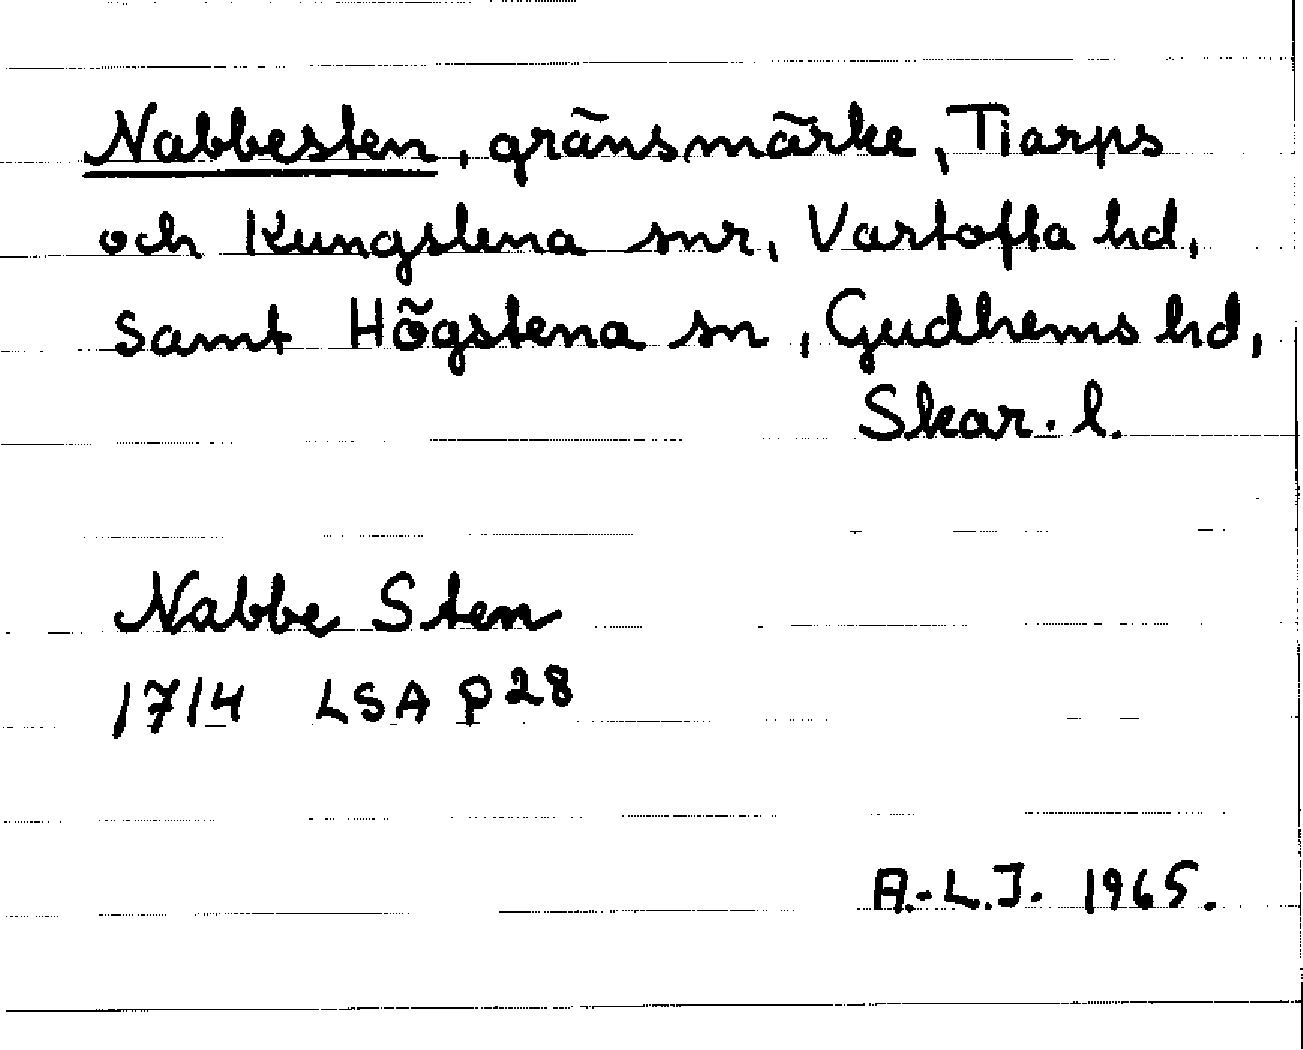 Nabbesten, gränsmärke, Tiarps
och Kungslena snr, Vartofta hd,
samt Högstena sn, Gudhems hd,
Skar. l.
Nabbe Sten
1714 LSA P28
A.-L.J. 1965.